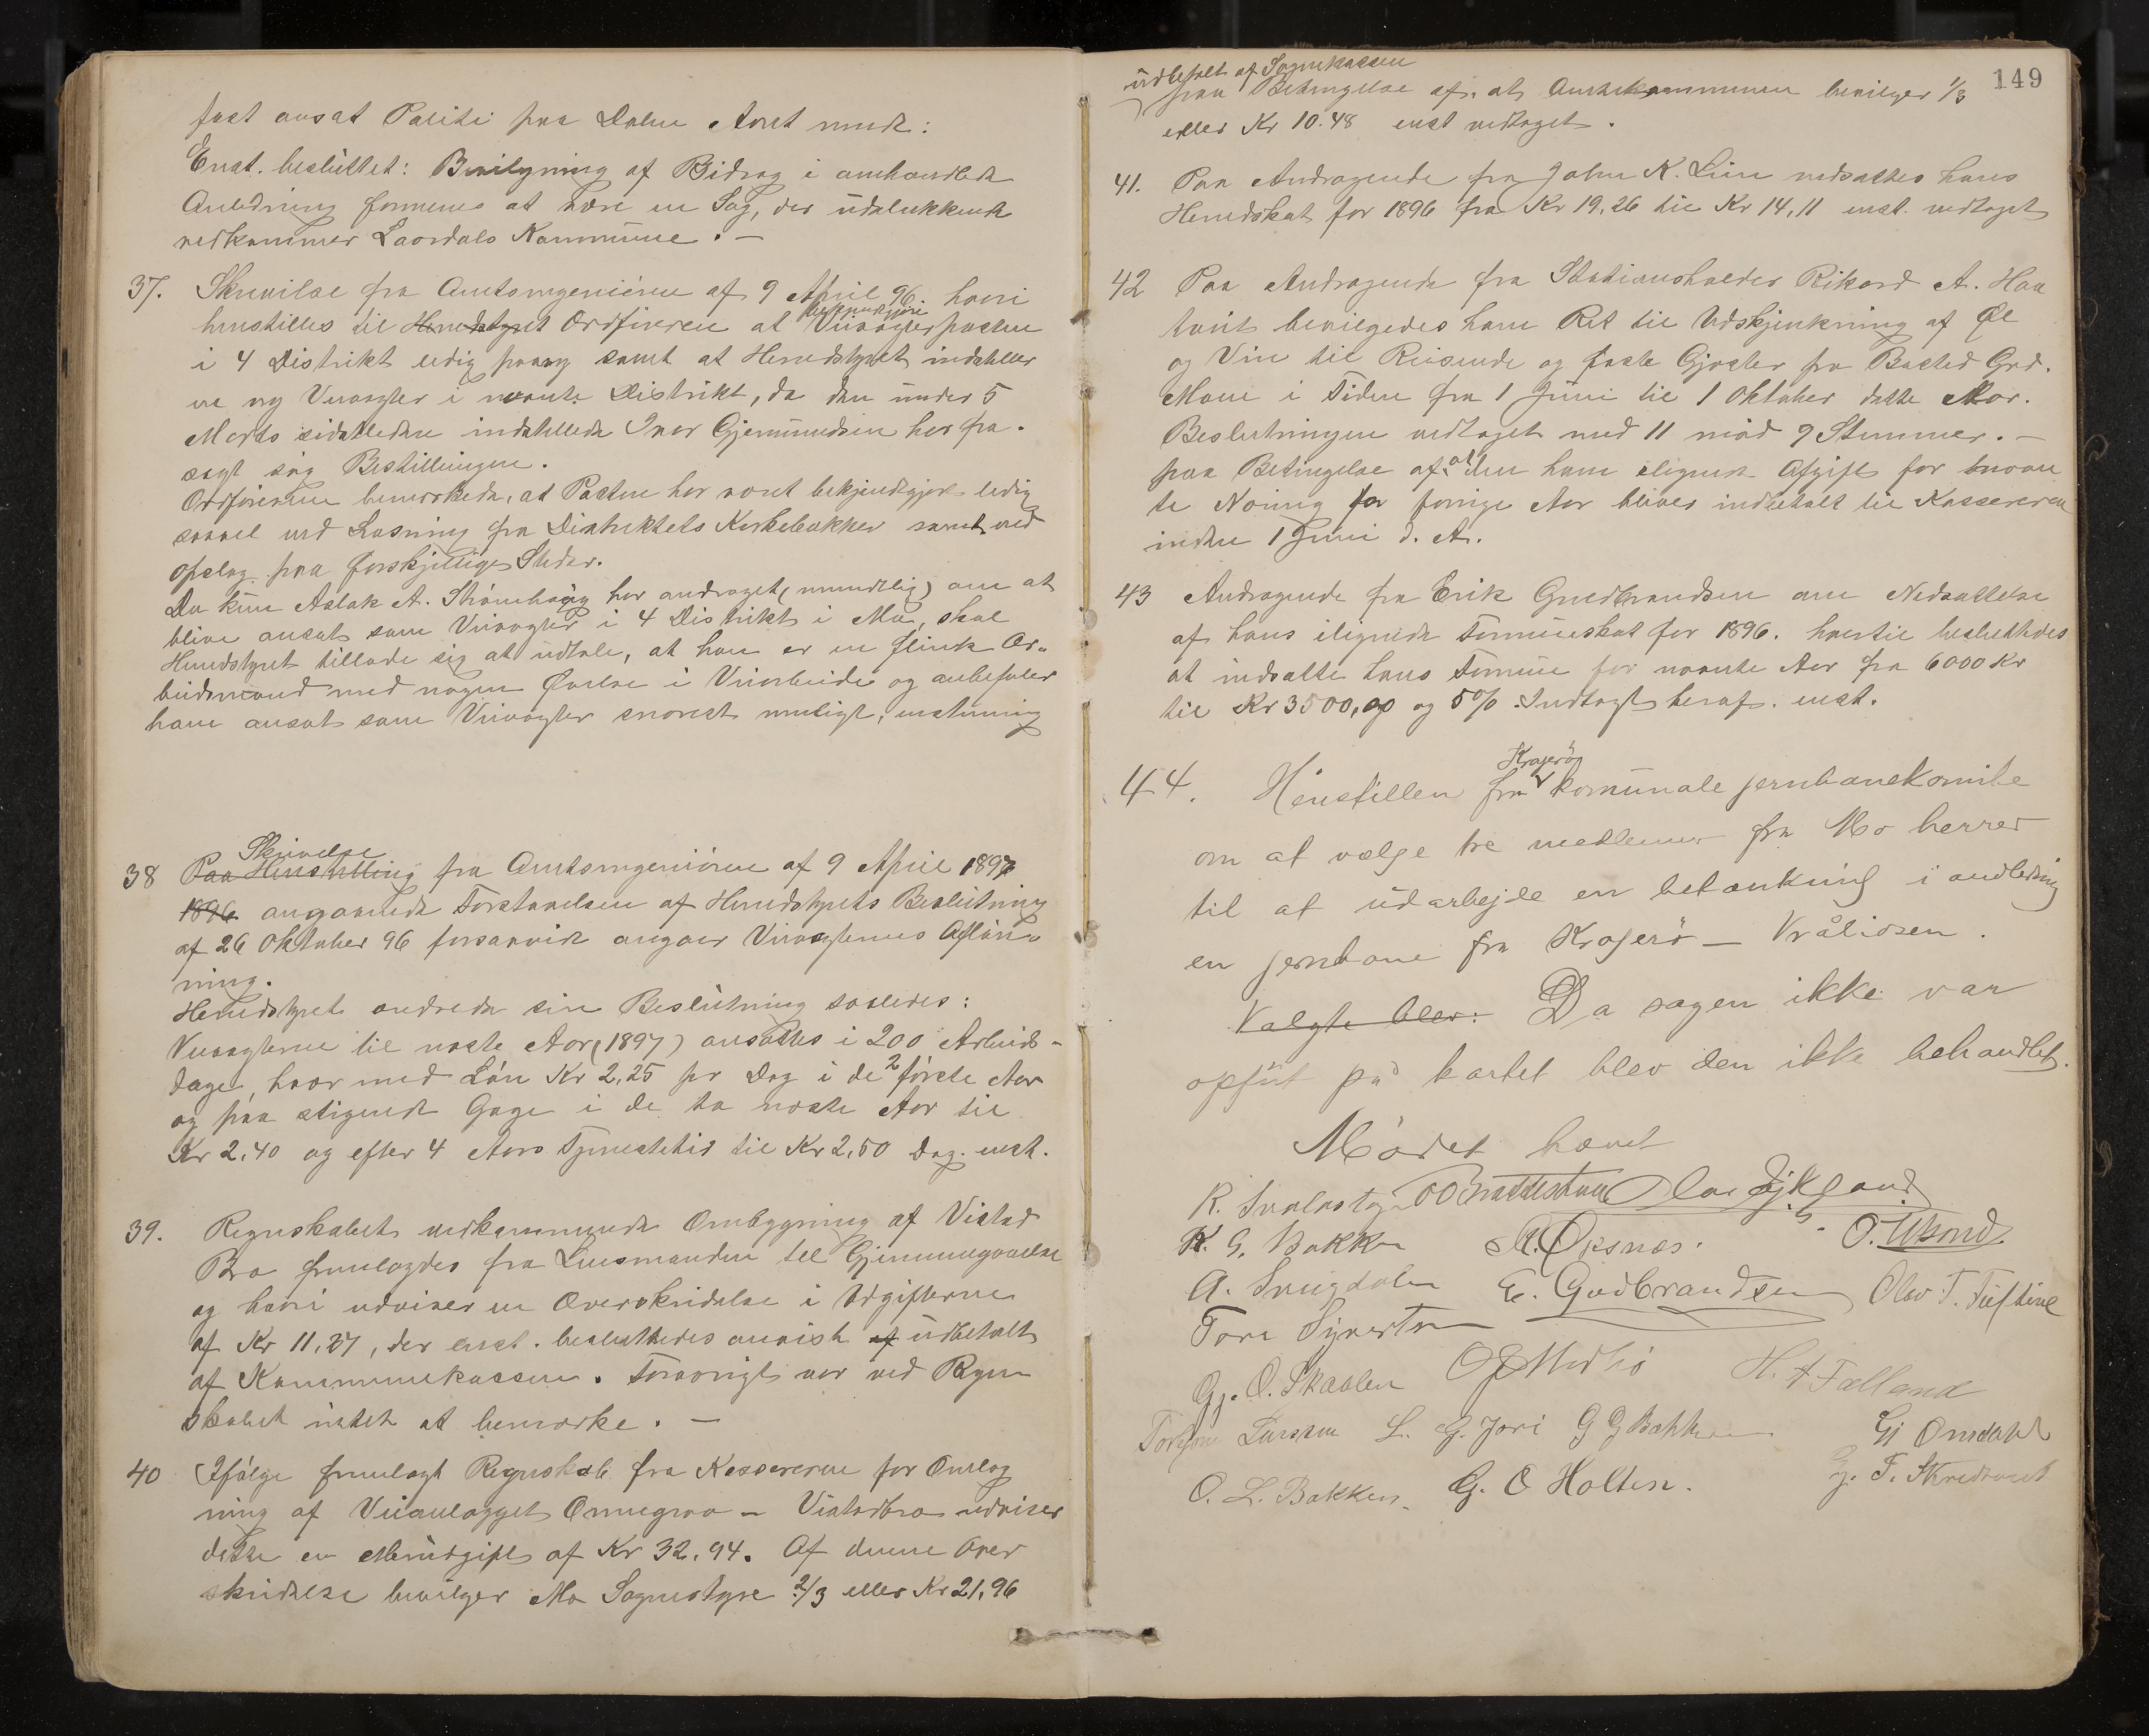 fast ansat Politi paa Dalen Aaret rundt:
Enst. besluttet: Bevilgning af Bidrag i omhandlede
Anledning formenes at være en Sag, der udelukkende
vedkommer Laardals Kommune. —
37. Skrivelse fra Amtsingeniøren af 9 April 96. hvori
henstilles til Herredstyret Ordføreren at bekjendtgjøre Veivogterposten
i 4 Distrikt ledig paany samt at Herredstyret indstiller
en ny Veivogter i nævnte Distrikt, da den under 5
Marts sidstleden indstillede Ivar Gjermundsen har fra-
sagt sig Bestillingen.
Ordføreren bemærkede, at Posten har været bekjendtgjort ledig
saavel ved Læsning fra Distriktets Kirkebakker samt ved
Opslag paa forskjellige Steder.
Da kun Aslak A. Strømhaug har andraget (mundtlig) om at
blive ansat som Veivogter i 4 Distrikt i Mo, skal
Herredstyret tillade sig at udtale, at han er en flink Ar-
beidsmand med nogen Øvelse i Veiarbeide og anbefaler
ham ansat som Veivogter snarest muligt, enstemmig
38 Paa Henstilling Skrivelse fra Amtsingeniøren af 9 April 1897
1896 angaaende Forstaaelsen af Herredstyrets Beslutning
af 26 Oktober 96 forsaavidt angaar Veivogternes Afløn-
ning.
Herredstyret endrede sin Beslutning saaledes:
Veivogterne til næste Aar (1897) ansættes i 200 Arbeids-
dage, hvor med Løn Kr 2,25 pr Dag i de 2 første Aar
og paa stigende Gage i de to næste Aar til
Kr 2,40 og efter 4 Aars Tjenestetid til Kr 2,50 Dag. enst.
39. Regnskabet vedkommende Ombygning af Vistad
Bro fremlagdes fra Lensmanden til Gjennemgaaelse
og hvori udviser en Overskridelse i Udgifterne
af Kr 11,37, der enst. besluttedes anvist af udbetalt
af Kommunekassen. Forøvrigt var ved Regn
skabet intet at bemærke. —
40 Ifølge fremlagt Regnskab fra Kassereren for Omlæg
ning af Veianlægget Omnegraa - Vistadbro udviser
dette en Merudgift af Kr 32,94. Af denne Over
skridelse bevilger Mo Sognestyre 2/3 eller Kr 21,96
149
udbetalt af Sognekassen
paa Betingelse af, at Amtskommunen bevilger 1/3
eller Kr 10.48 enst vedtaget.
41. Paa Andragende fra John K. Lien nedsattes hans
Herredskat for 1896 fra Kr 19,26 til Kr 14,11 enst. vedtaget
42 Paa Andragende fra Stationsholder Rikard A. Haa
tveit bevilgedes ham Ret til Udskjenkning af Øl
og Vin til Reisende og faste Gjæster fra Bosted Grd.
Moen i Tiden fra 1 Juni til 1 Oktober dette Aar.
Beslutningen vedtaget med 11 mod 9 Stemmer. —
paa Betingelse af at den ham ilignede Afgift for nævn
te Næring for forrige Aar bliver indbetalt til Kassereren
inden 1 Juni d. A.
43 Andragende fra Erik Gudbrandsen om Nedsættelse
af hans ilignede Formueskat for 1896. hvortil besluttedes
at nedsætte hans Formue for nævnte Aar fra 6000 Kr
til Kr 3500,00 og 5% Indtægt heraf. enst.
44. Henstillen fra Kragerø komunale jernbanekomite
om at vælge tre medlemer fra Mo herred
til at udarbejde en betænkning i andledning
en jernbane fra Kragerø — Vråliosen.
Valgte blev: Da sagen ikke var
opført på kartet blev den ikke behandlet.
Mødet hævet
R. Svalastog OO Brattestaae Olav Lykjland
K. G. Bakken A. Oksnæs. O. Ukonda
A. Snigdalen E. Gudbrandsen Olav T. Tufteine
Tore Syverts
Gj. O. Skaalen O G Midbø H. A Falland
Torgrim Larssen L. G. Jore G G Bakken Gj Omdahl
O. L. Bakken. G. O Holten. Gj. T. Skredtveit